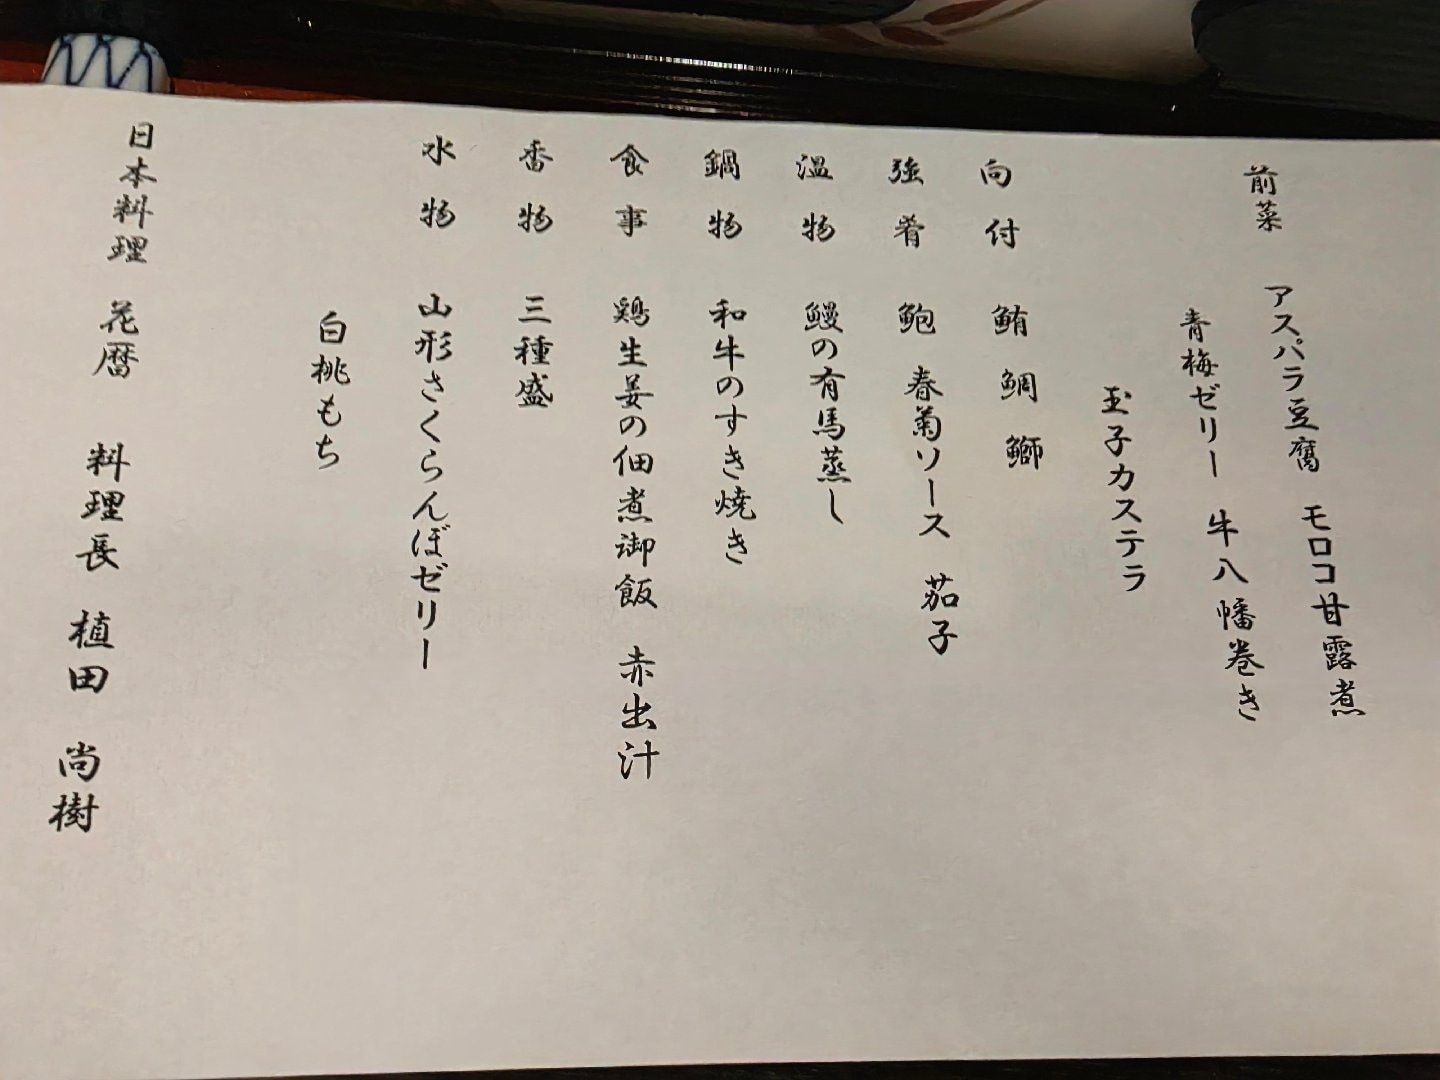 前菜 アスパラ豆腐 モロコ甘露煮
青梅ゼリー 牛八幡巻き
玉子カステラ
向付 鮪 鯛 鰤
強肴 鮑 春菊ソース 茄子
温物 鰻の有馬蒸し
鍋物 和牛のすき焼き
食事 鶏生姜の佃煮御飯 赤出汁
香物 三種盛
水物 山形さくらんぼゼリー
白桃もち
日本料理 花暦 料理長 植田 尚樹